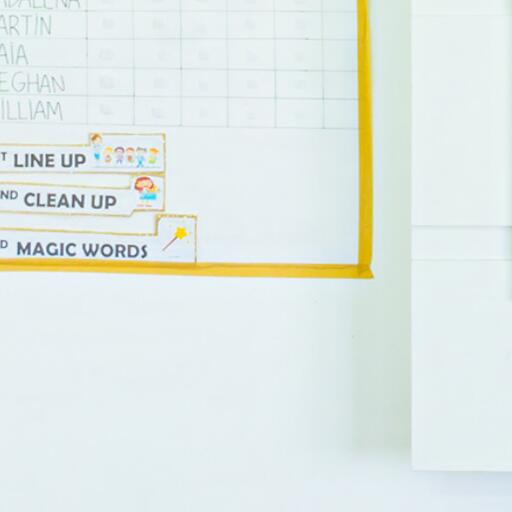 ARTIN
AIA
EGHAN
ILLIAM
T LINE UP
ND CLEAN UP
D MAGIC WORDS